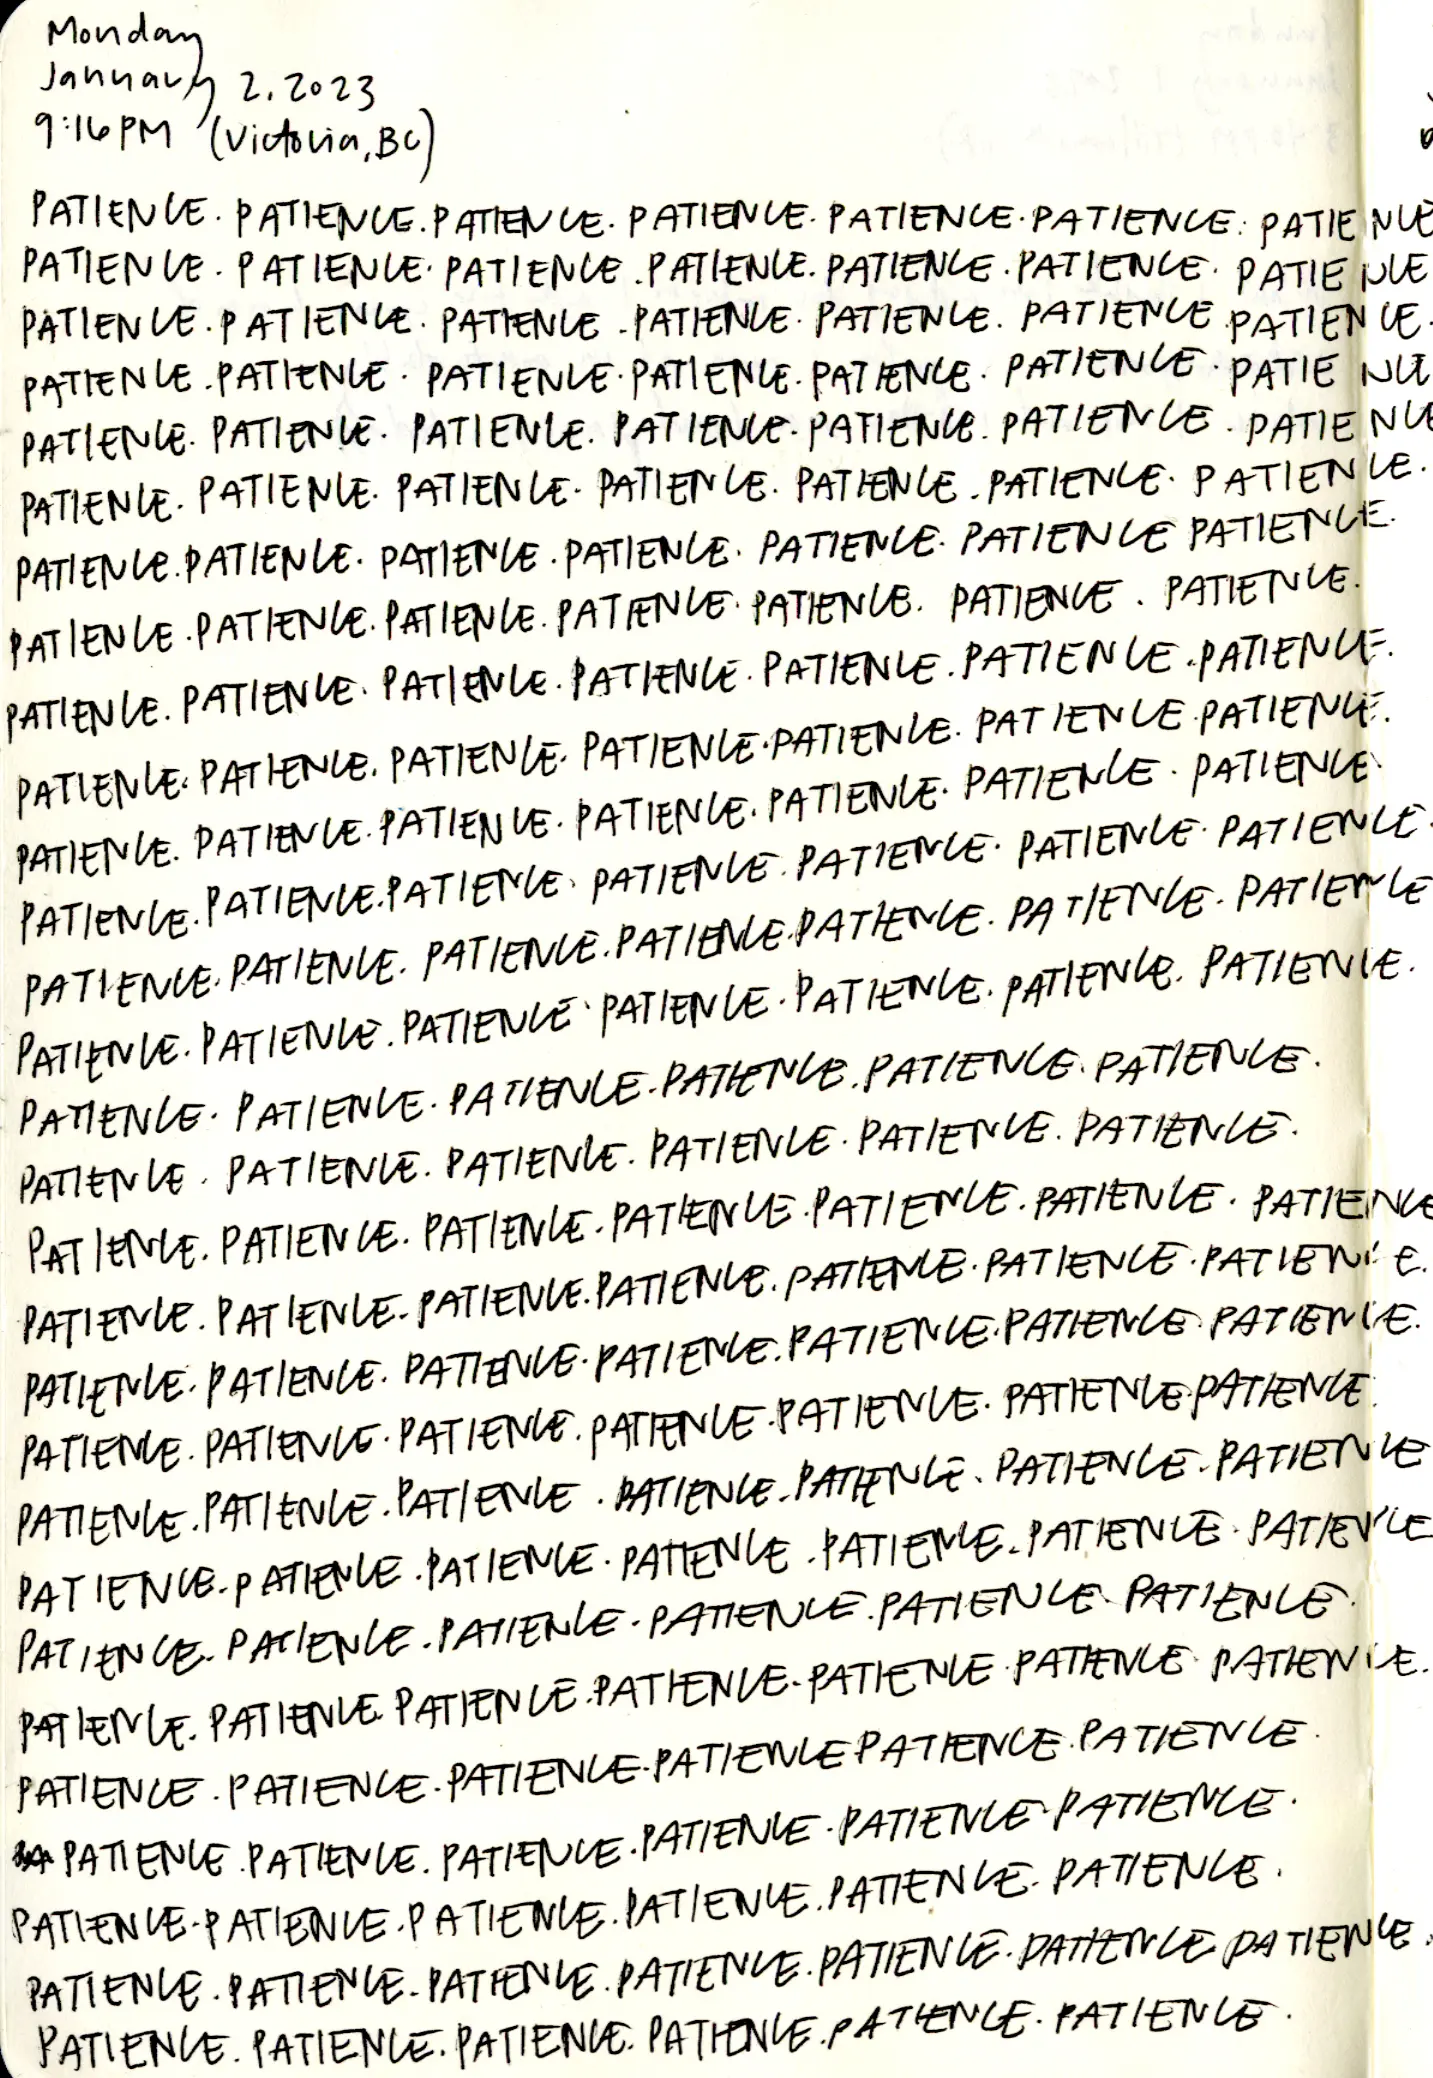 Monday
January 2, 2023
9:16 PM (Victoria, BC)
PATIENCE. PATIENCE. PATIENCE. PATIENCE. PATIENCE. PATIENCE. PATIENCE
PATIENCE. PATIENCE. PATIENCE. PATIENCE. PATIENCE. PATIENCE. PATIENCE
PATIENCE. PATIENCE. PATIENCE. PATIENCE. PATIENCE. PATIENCE. PATIENCE.
PATIENCE. PATIENCE. PATIENCE. PATIENCE. PATIENCE. PATIENCE. PATIENCE
PATIENCE. PATIENCE. PATIENCE. PATIENCE. PATIENCE. PATIENCE. PATIENCE
PATIENCE. PATIENCE. PATIENCE. PATIENCE. PATIENCE. PATIENCE. PATIENCE.
PATIENCE. PATIENCE. PATIENCE. PATIENCE. PATIENCE. PATIENCE PATIENCE.
PATIENCE. PATIENCE. PATIENCE. PATIENCE. PATIENCE. PATIENCE. PATIENCE.
PATIENCE. PATIENCE. PATIENCE. PATIENCE. PATIENCE. PATIENCE. PATIENCE.
PATIENCE. PATIENCE. PATIENCE. PATIENCE. PATIENCE. PATIENCE. PATIENCE.
PATIENCE. PATIENCE. PATIENCE. PATIENCE. PATIENCE. PATIENCE. PATIENCE.
PATIENCE. PATIENCE. PATIENCE. PATIENCE. PATIENCE. PATIENCE. PATIENCE.
PATIENCE. PATIENCE. PATIENCE. PATIENCE. PATIENCE. PATIENCE. PATIENCE
PATIENCE. PATIENCE. PATIENCE. PATIENCE. PATIENCE. PATIENCE. PATIENCE.
PATIENCE. PATIENCE. PATIENCE. PATIENCE. PATIENCE. PATIENCE.
PATIENCE. PATIENCE. PATIENCE. PATIENCE. PATIENCE. PATIENCE.
PATIENCE. PATIENCE. PATIENCE. PATIENCE. PATIENCE. PATIENCE. PATIENCE
PATIENCE. PATIENCE. PATIENCE. PATIENCE. PATIENCE. PATIENCE. PATIENCE.
PATIENCE. PATIENCE. PATIENCE. PATIENCE. PATIENCE. PATIENCE. PATIENCE.
PATIENCE. PATIENCE. PATIENCE. PATIENCE. PATIENCE. PATIENCE. PATIENCE.
PATIENCE. PATIENCE. PATIENCE. PATIENCE. PATIENCE. PATIENCE. PATIENCE
PATIENCE. PATIENCE. PATIENCE. PATIENCE. PATIENCE. PATIENCE. PATIENCE
PATIENCE. PATIENCE. PATIENCE. PATIENCE. PATIENCE. PATIENCE.
PATIENCE. PATIENCE. PATIENCE. PATIENCE. PATIENCE. PATIENCE. PATIENCE.
PATIENCE. PATIENCE. PATIENCE. PATIENCE PATIENCE. PATIENCE.
PATIENCE. PATIENCE. PATIENCE. PATIENCE. PATIENCE. PATIENCE.
PATIENCE. PATIENCE. PATIENCE. PATIENCE. PATIENCE. PATIENCE.
PATIENCE. PATIENCE. PATIENCE. PATIENCE. PATIENCE. PATIENCE. PATIENCE.
PATIENCE. PATIENCE. PATIENCE. PATIENCE. PATIENCE. PATIENCE.